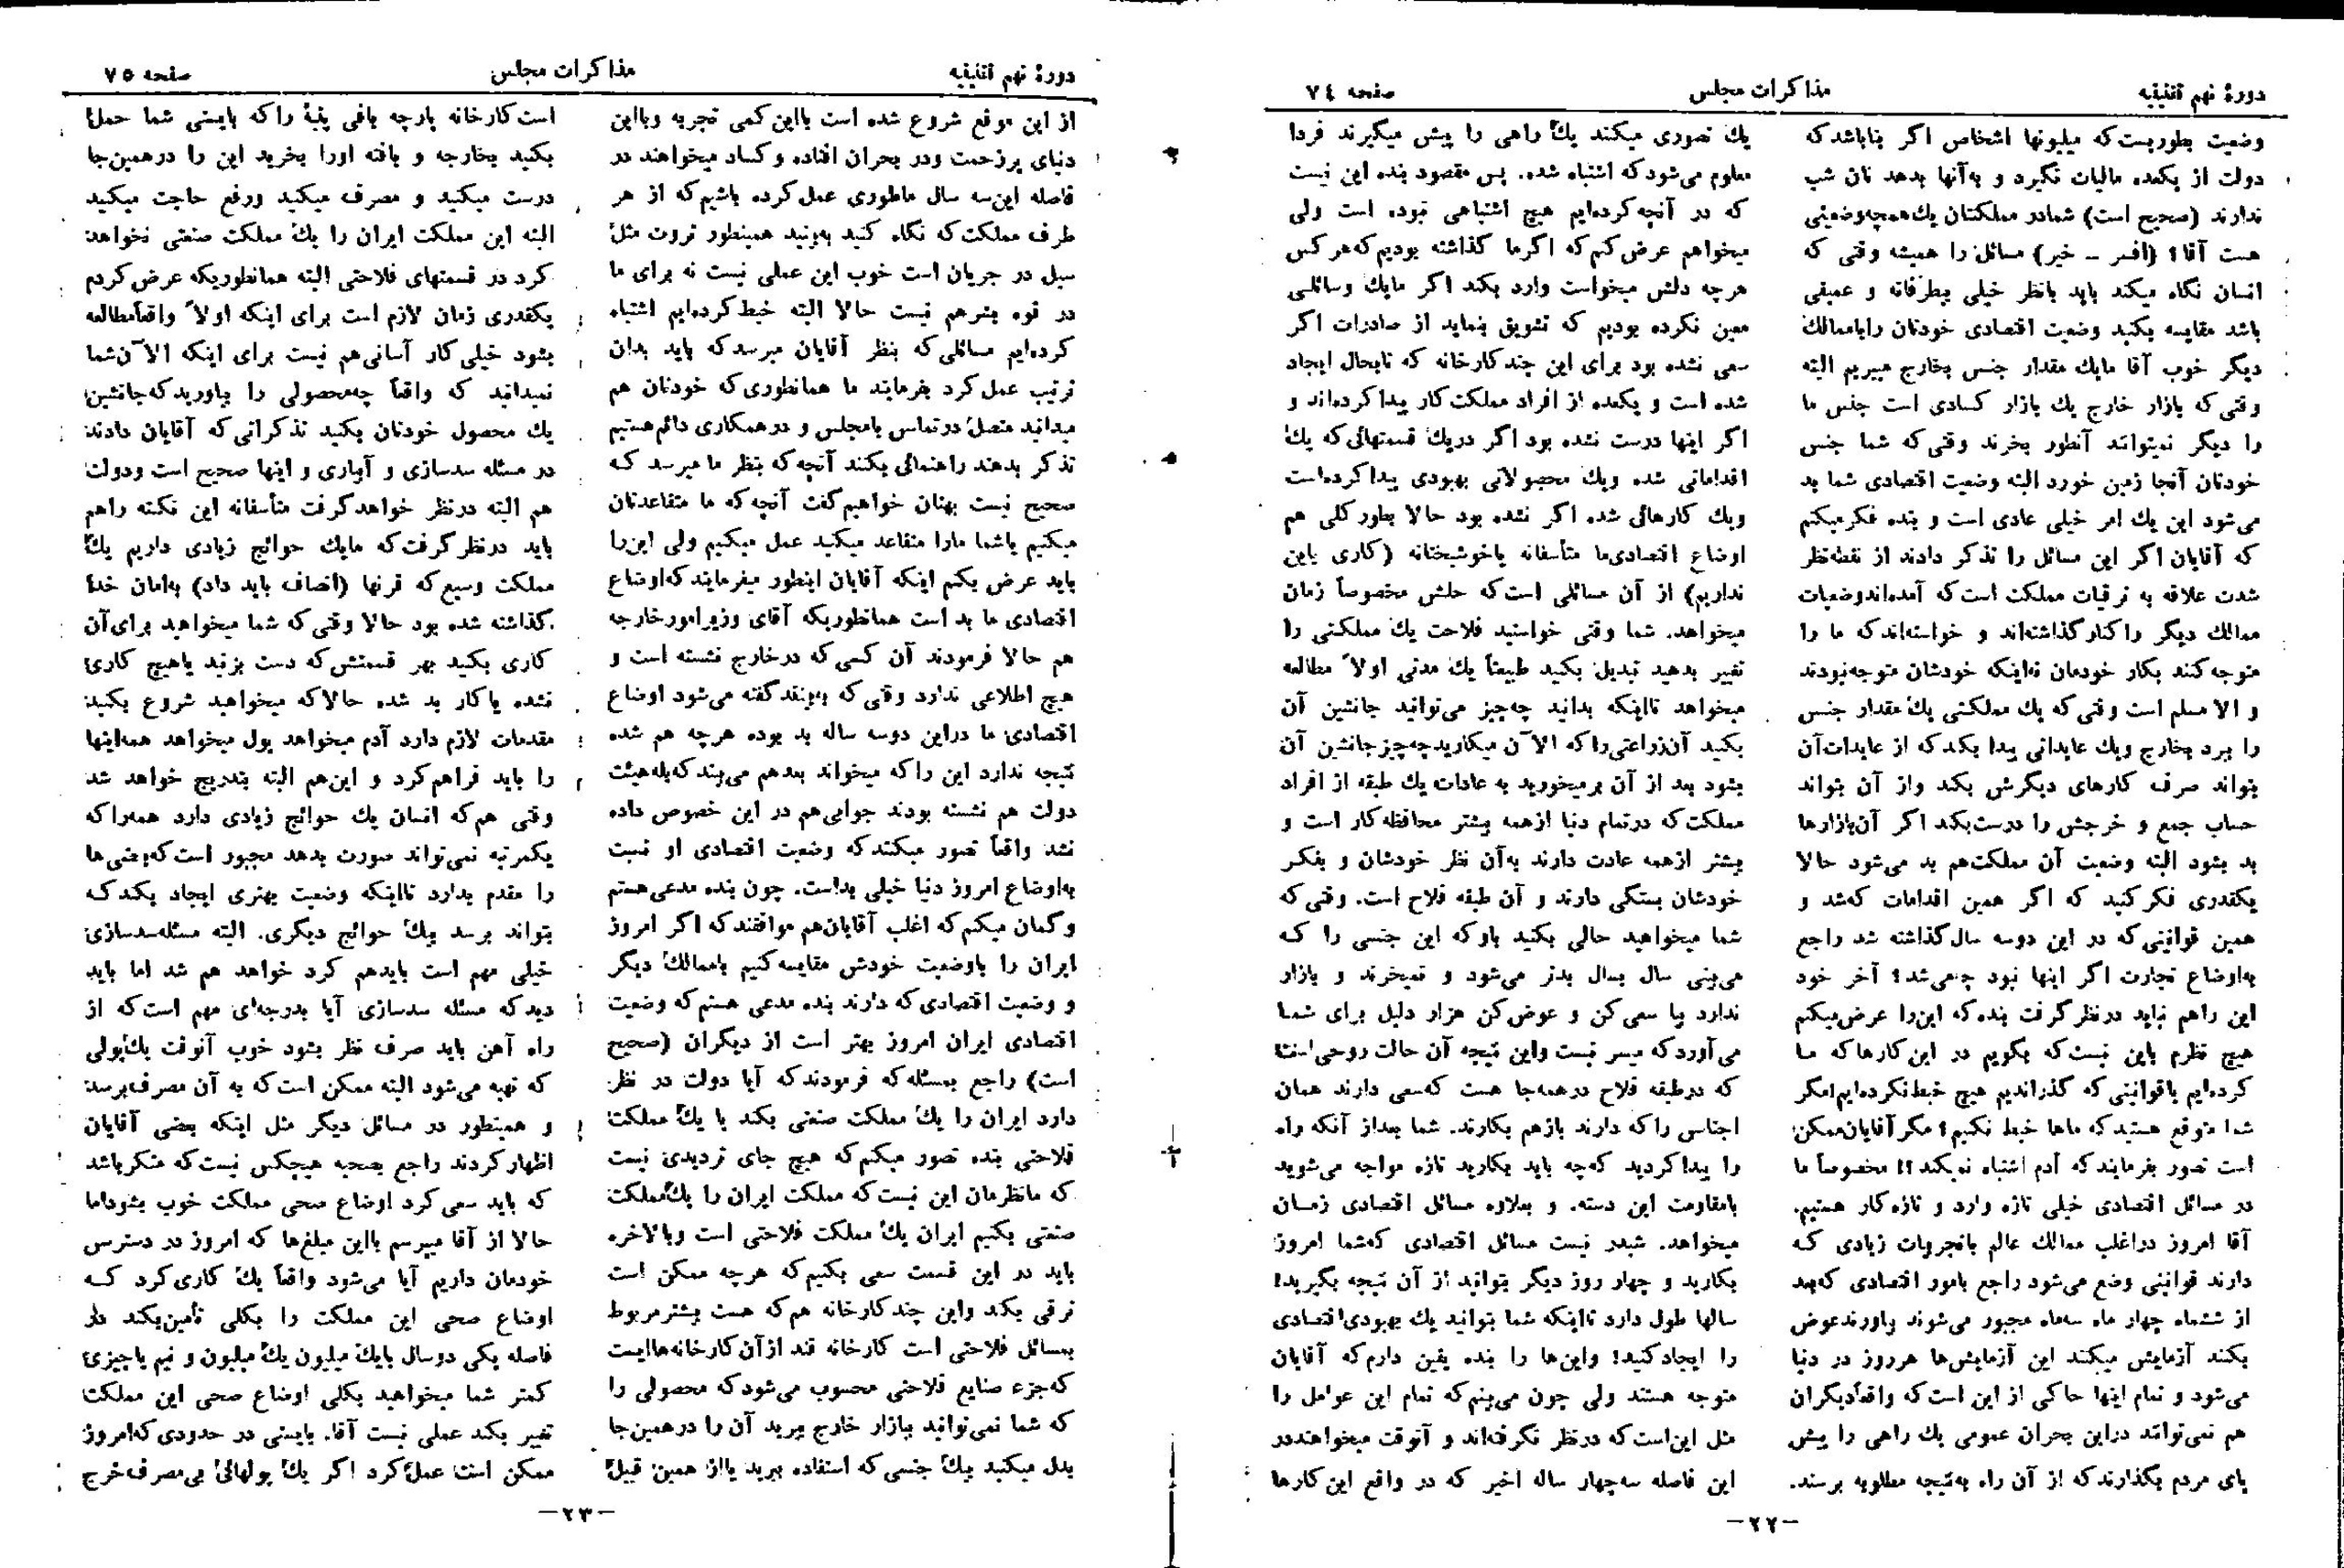 دورهٔ نهم تقنینیه
مذاکرات مجلس
صفحه ٧٤
وضعیت بطوریست که میلیونها اشخاص اگر بناباشد که
دولت از یکعده مالیات نگیرد و به‌آنها بدهد نان شب
ندارند (صحیح است) شمادر مملکتتان یك‌همچه‌وضعیتی
هست آقا؟ (افسر ـ خیر) مسائل را همیشه وقتی که
انسان نگاه میکند باید بانظر خیلی بیطرفانه و عمیقی
باشد مقایسه بکنید وضعیت اقتصادی خودتان رابا‌ممالك
دیگر خوب آقا مایك مقدار جنس بخارج میبریم البته
وقتی که بازار خارج یك بازار کسادی است جنس ما
را دیگر نمیتوانند آنطور بخرند وقتی که شما جنس
خودتان آنجا زمین خورد البته وضعیت اقتصادی شما بد
می‌شود این یك امر خیلی عادی است و بنده فکرمیکنم
که آقایان اگر این مسائل را تذکر دادند از نقطه‌نظر
شدت علاقه به ترقیات مملکت است که آمده‌اندوضعیات
ممالك دیگر راکنارگذاشته‌اند و خواسته‌اندکه ما را
متوجه‌کنند بکار خودمان نه‌اینکه خودشان متوجه‌نبودند
و الا مسلم است وقتی که یك مملکتی یك مقدار جنس
را برد بخارج ویك عایداتی پیدا بکندکه از عایدات‌آن
بتواند صرف کارهای دیگرش بکند واز آن بتواند
حساب جمع و خرجش را درست‌بکند اگر آن‌بازارها
بد بشود البته وضعیت آن مملکت‌هم بد می‌شود حالا
یکقدری فکرکنید که اگر همین اقدامات که‌شد و
همین قوانینی‌که در این دوسه سال‌گذاشته شد راجع
به‌اوضاع تجارت اگر اینها نبود چه‌می‌شد؟ آخر خود
این راهم نباید درنظرگرفت بنده‌که این‌را عرض‌میکنم
هیچ نظرم باین نیست‌که بگویم در این‌کارهاکه ما
کرده‌ایم یاقوانینی‌که گذراندیم هیچ خبط‌نکرده‌ایم‌مگر
شما متوقع هستیدکه ماها خبط نکنیم؟ مگرآقایان‌ممکن
است تصور بفرمایندکه آدم اشتباه نمیکند؟! مخصوصاً ما
در مسائل اقتصادی خیلی تازه وارد و تازه‌کار هستیم.
آقا امروز دراغلب ممالك عالم باتجربیات زیادی که
دارند قوانینی وضع می‌شود راجع بامور اقتصادی که‌بعد
از ششماه چهار ماه سه‌ماه مجبور می‌شوند بیاورندعوض
بکنند آزمایش میکنند این آزمایش‌ها هرروز در دنیا
می‌شود و تمام اینها حاکی از این است که واقعاًدیگران
هم نمی‌توانند دراین بحران عمومی یك راهی را پیش
پای مردم بگذارندکه از آن راه به‌نتیجه مطلوبه برسند.
یك تصوری میکنند یك راهی را پیش میگیرند فردا
معلوم می‌شودکه اشتباه شده. پس مقصود بنده این نیست
که در آنچه‌کرده‌ایم هیچ اشتباهی نبوده است ولی
میخواهم عرض‌کنم‌که اگرما گذاشته بودیم‌که‌هرکس
هرچه دلش میخواست وارد بکند اگر مایك وسائلی
معین نکرده بودیم که تشویق بنماید از صادرات اگر
سعی نشده بود برای این چندکارخانه که تابحال ایجاد
شده است و یکعده از افراد مملکت‌کار پیداکرده‌اند و
اگر اینها درست نشده بود اگر دریك قسمتهائی‌که یك
اقداماتی شده ویك محصولاتی بهبودی پیداکرده‌است
ویك کارهائی شده اگر نشده بود حالا بطورکلی هم
اوضاع اقتصادی‌ما متأسفانه یاخوشبختانه (کاری باین
نداریم) از آن مسائلی است‌که حلش مخصوصاً زمان
میخواهد. شما وقتی خواستید فلاحت یك مملکتی را
تغییر بدهید تبدیل بکنید طبیعتاً یك مدتی اولاً مطالعه
میخواهد تااینکه بدانید چه‌چیز می‌توانید جانشین آن
بکنید آن‌زراعتی‌راکه الآن میکاریدچه‌چیزجانشین آن
بشود بعد از آن برمیخورید به عادات یك طبقه از افراد
مملکت‌که درتمام دنیا ازهمه بیشتر محافظه‌کار است و
بیشتر ازهمه عادت دارند به‌آن نظر خودشان و بفکر
خودشان بستگی دارند و آن طبقه فلاح است. وقتی‌که
شما میخواهید حالی بکنید باوکه این جنسی را که
می‌بینی سال بسال بدتر می‌شود و نمیخرند و بازار
ندارد بیا سعی‌کن و عوض‌کن هزار دلیل برای شما
می‌آوردکه میسر نیست واین نتیجه آن حالت روحی‌است
که درطبقه فلاح درهمه‌جا هست که‌سعی دارند همان
اجناس راکه دارند بازهم بکارند. شما بعداز آنکه راه
را پیداکردید که‌چه باید بکارید تازه مواجه می‌شوید
بامقاومت این دسته. و بعلاوه مسائل اقتصادی زمان
میخواهد. شبدر نیست مسائل اقتصادی که‌شما امروز
بکارید و چهار روز دیگر بتوانید از آن نتیجه بگیرید!
سالها طول دارد تااینکه شما بتوانید یك بهبودی‌اقتصادی
را ایجادکنید! واین‌ها را بنده یقین دارم‌که آقایان
متوجه هستند ولی چون می‌بینم‌که تمام این عوامل را
مثل این‌است‌که درنظر نگرفته‌اند و آنوقت میخواهنددر
این فاصله سه‌چهار ساله اخیر که در واقع این‌کارها
-٢٢-
دورهٔ نهم تقنینیه
مذاکرات مجلس
صفحه ٧٥
از این موقع شروع شده است بااین‌کمی تجربه وبااین
دنیای پرزحمت ودر بحران افتاده و کساد میخواهند در
فاصله این‌سه سال ماطوری عمل‌کرده باشیم‌که از هر
طرف مملکت‌که نگاه کنید به‌بینید همینطور ثروت مثل
سیل در جریان است خوب این عملی نیست نه برای ما
در قوه بشرهم نیست حالا البته خبط‌کرده‌ایم اشتباه
کرده‌ایم مسائلی‌که بنظر آقایان میرسدکه باید بدان
ترتیب عمل‌کرد بفرمایند ما همانطوری‌که خودتان هم
میدانید متصل درتماس بامجلس و درهمکاری دائم‌هستیم
تذکر بدهند راهنمائی بکنند آنچه‌که بنظر ما میرسد که
صحیح نیست بهتان خواهیم‌گفت آنچه‌که ما متقاعدتان
میکنیم یاشما مارا متقاعد میکنید عمل میکنیم ولی این‌را
باید عرض بکنم اینکه آقایان اینطور میفرمایندکه‌اوضاع
اقتصادی ما بد است همانطوریکه آقای وزیرامورخارجه
هم حالا فرمودند آن کسی‌که درخارج نشسته است و
هیچ اطلاعی ندارد وقتی که به‌بیندگفته می‌شود اوضاع
اقتصادی ما دراین دوسه ساله بد بوده هرچه هم شده
نتیجه ندارد این راکه میخواند بعدهم می‌بیندکه‌بله‌هیئت
دولت هم نشسته بودند جوابی‌هم در این خصوص داده
نشد واقعاً تصور میکندکه وضعیت اقتصادی او نسبت
به‌اوضاع امروز دنیا خیلی بداست. چون بنده مدعی‌هستم
وگمان میکنم‌که اغلب آقایان‌هم موافقندکه اگر امروز
ایران را باوضعیت خودش مقایسه‌کنیم باممالك دیگر
و وضعیت اقتصادی‌که دارند بنده مدعی هستم‌که وضعیت
اقتصادی ایران امروز بهتر است از دیگران (صحیح
است) راجع بمسئله‌که فرمودندکه آیا دولت در نظر
دارد ایران را یك مملکت صنعتی بکند یا یك مملکت
فلاحتی بنده تصور میکنم‌که هیچ جای تردیدی نیست
که مانظرمان این نیست‌که مملکت ایران را یك‌مملکت
صنعتی بکنیم ایران یك مملکت فلاحتی است وبالاخره
باید در این قسمت سعی بکنیم‌که هرچه ممکن است
ترقی بکند واین چندکارخانه هم‌که هست بیشترمربوط
بمسائل فلاحتی است کارخانه قند ازآن‌کارخانه‌هاایست
که‌جزء صنایع فلاحتی محسوب می‌شودکه محصولی را
که شما نمی‌توانید ببازار خارج ببرید آن را درهمین‌جا
بدل میکنید بیك جنسی‌که استفاده ببرید یااز همین قبیل
است‌کارخانه پارچه بافی پنبهٔ راکه بایستی شما حمل
بکنید بخارجه و بافته اورا بخرید این را درهمین‌جا
درست میکنید و مصرف میکنید ورفع حاجت میکنید
البته این مملکت ایران را یك مملکت صنعتی نخواهد
کرد در قسمتهای فلاحتی البته همانطوریکه عرض‌کردم
یکقدری زمان لازم است برای اینکه اولاً واقعاًمطالعه
بشود خیلی‌کار آسانی‌هم نیست برای اینکه الآن‌شما
نمیدانید که واقعاً چه‌محصولی را بیاوریدکه‌جانشین
یك محصول خودتان بکنید تذکراتی‌که آقایان دادند
در مسئله سدسازی و آبیاری و اینها صحیح است ودولت
هم البته درنظر خواهدگرفت متأسفانه این نکته راهم
باید درنظرگرفت‌که مایك حوائج زیادی داریم یك
مملکت وسیع‌که قرنها (انصاف باید داد) به‌امان خدا
گذاشته شده بود حالا وقتی‌که شما میخواهید برای‌آن
کاری بکنید بهر قسمتش‌که دست بزنید یاهیچ کاری
نشده یاکار بد شده حالاکه میخواهید شروع بکنید
مقدمات لازم دارد آدم میخواهد پول میخواهد همه‌اینها
را باید فراهم‌کرد و این‌هم البته بتدریج خواهد شد
وقتی هم‌که انسان یك حوائج زیادی دارد همه‌راکه
یکمرتبه نمی‌تواند صورت بدهد مجبور است‌که‌بعضی‌ها
را مقدم بدارد تااینکه وضعیت بهتری ایجاد بکندکه
بتواند برسد بیك حوائج دیگری. البته مسئله‌سدسازی
خیلی مهم است بایدهم کرد خواهد هم شد اما باید
دیدکه مسئله سدسازی آیا بدرجه‌ای مهم است‌که از
راه آهن باید صرف نظر بشود خوب آنوقت یك‌پولی
که تهیه می‌شود البته ممکن است‌که به آن مصرف‌برسد
و همینطور در مسائل دیگر مثل اینکه بعضی آقایان
اظهارکردند راجع بصحیه هیچکس نیست‌که منکرباشد
که باید سعی‌کرد اوضاع صحی مملکت خوب بشوداما
حالا از آقا میپرسم بااین مبلغ‌ها که امروز در دسترس
خودمان داریم آیا می‌شود واقعاً یك کاری‌کرد که
اوضاع صحی این مملکت را بکلی تأمین‌بکند در
فاصله یکی دوسال بایك میلیون یك میلیون و نیم یاچیزی
کمتر شما میخواهید بکلی اوضاع صحی این مملکت
تغییر بکند عملی نیست آقا. بایستی در حدودی که‌امروز
ممکن است عمل‌کرد اگر یك پولهائی بی‌مصرف‌خرج
-٢٣-